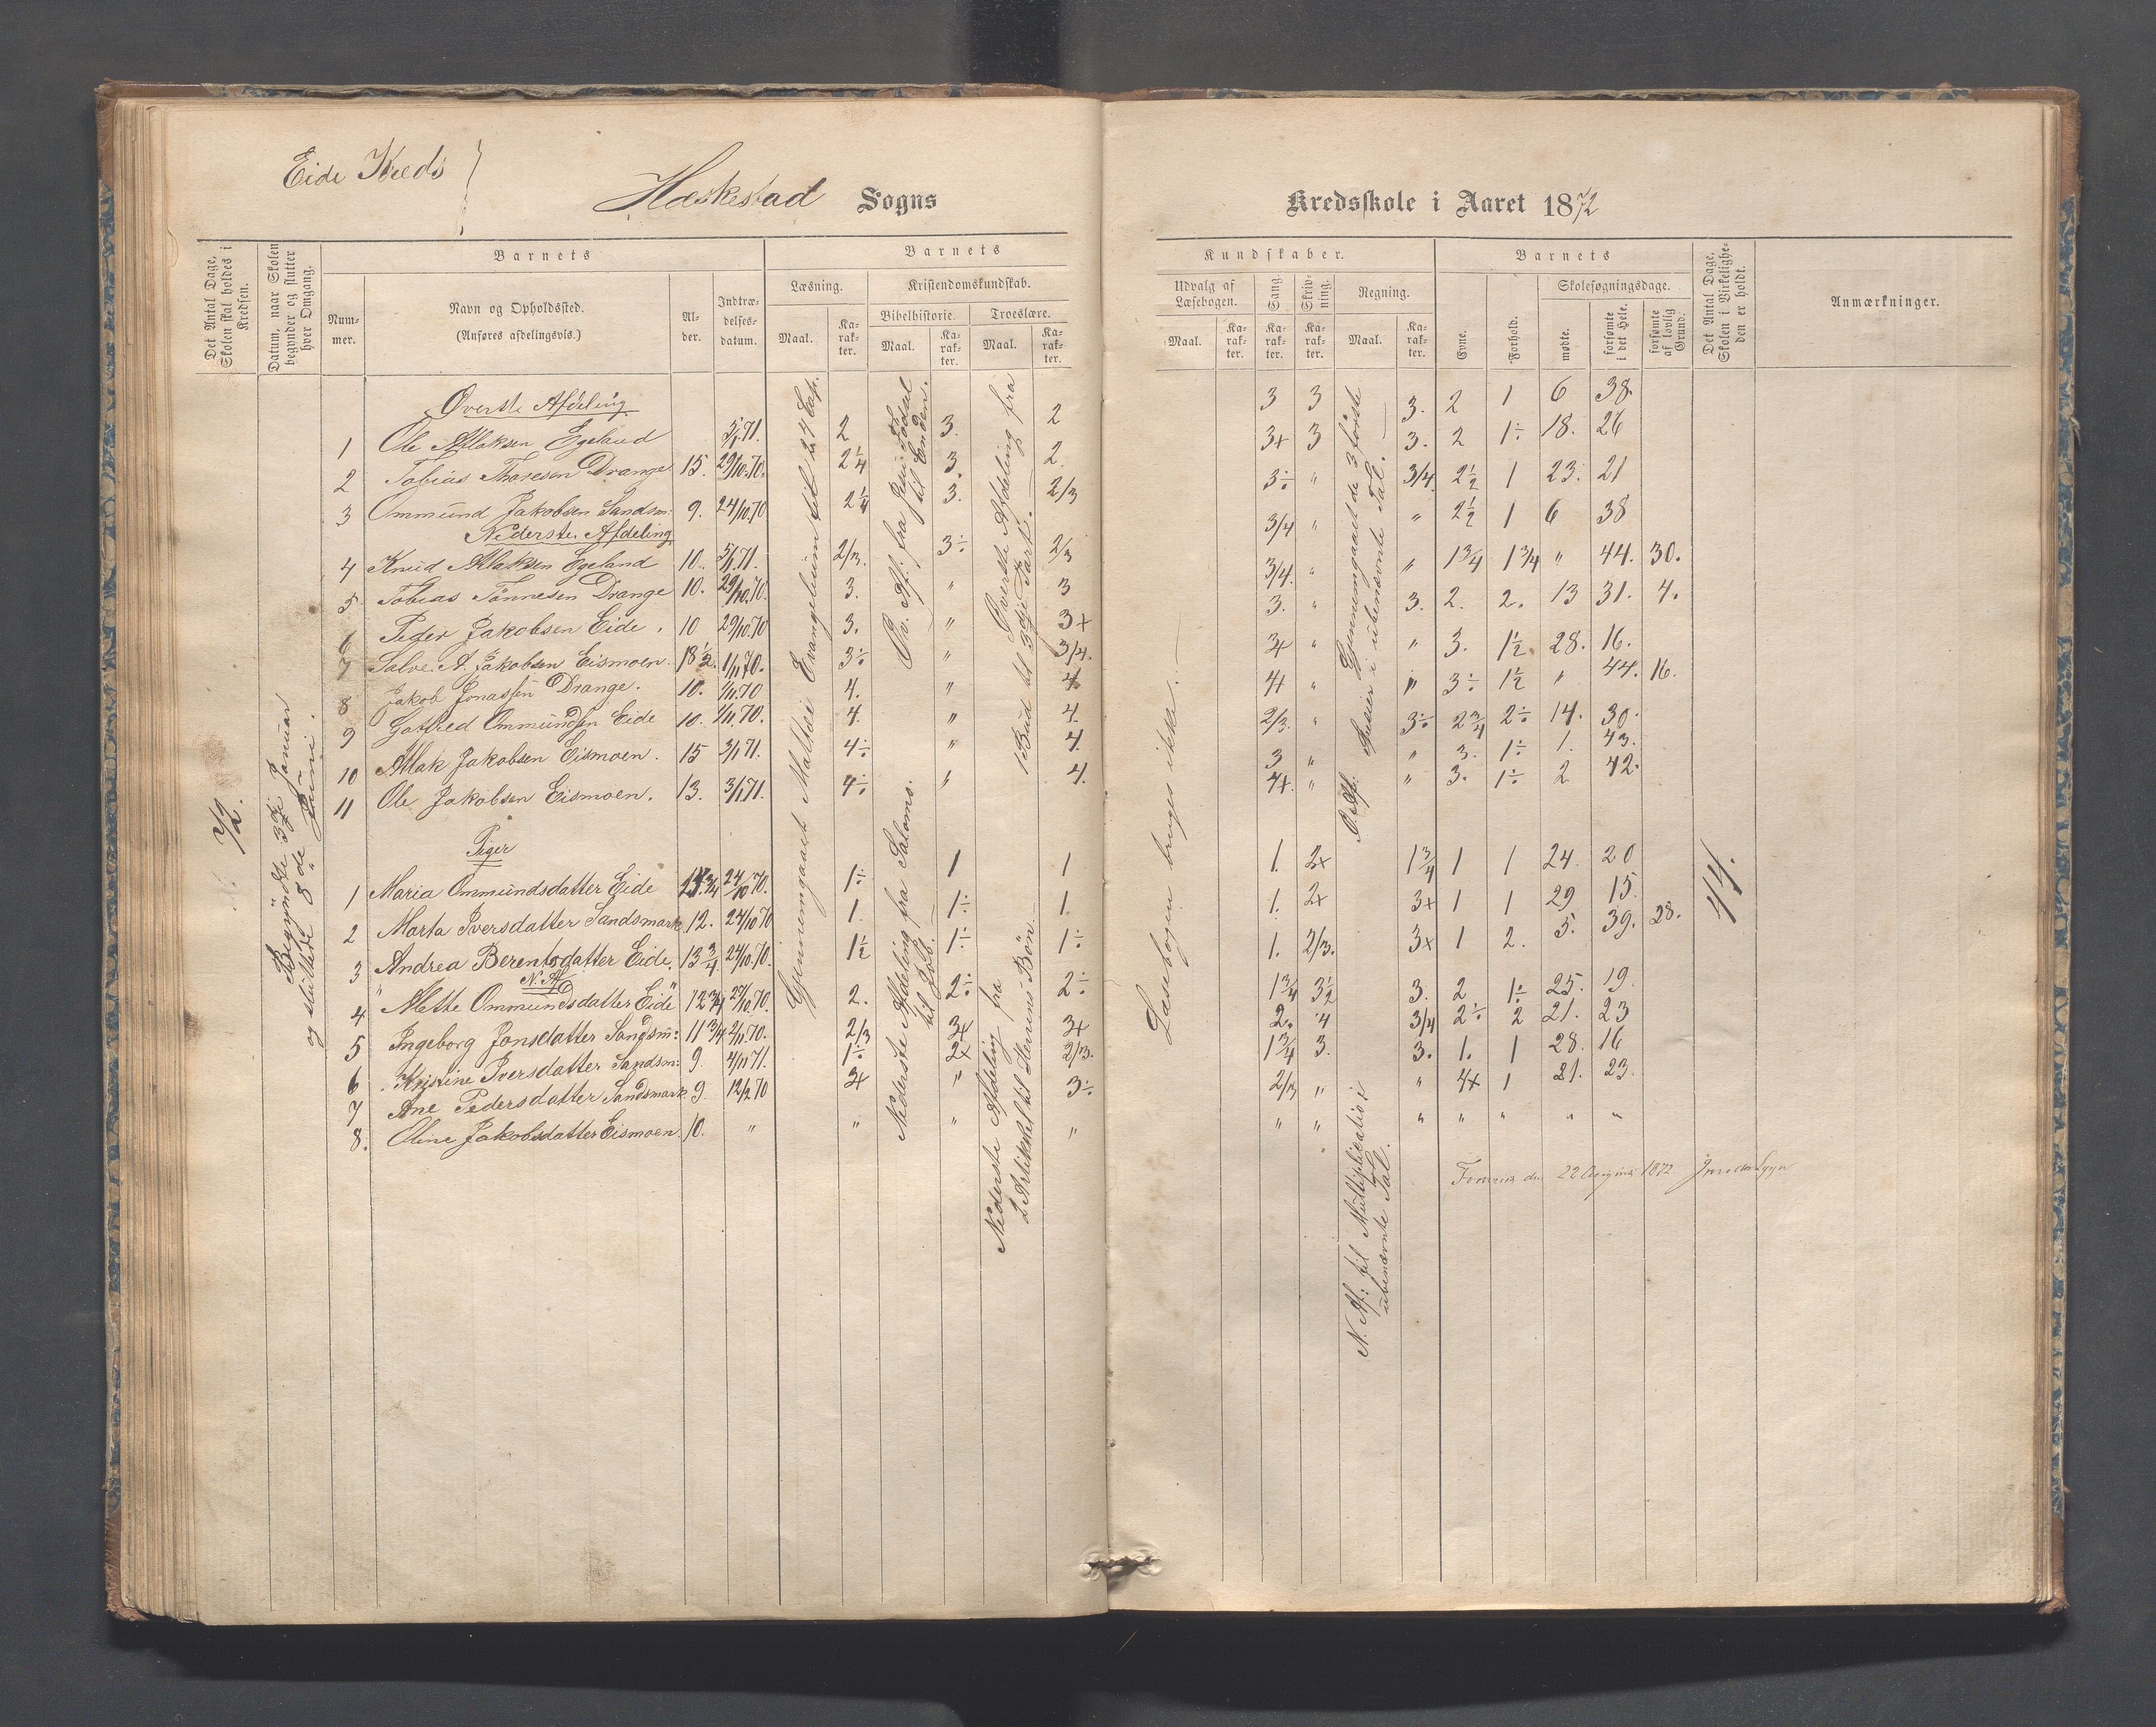 Eide Kreds
Heskestad Sogns
Kredsskole i Aaret 1872
Det Antal Dage, Skolen skal holdes i Kredsen.
Datum, naar Skolen begynder og slutter hver Omgang.
Barnets
Num-mer.
Navn og Opholdssted.
(Anføres afdelingsvis.)
Al-der.
Indtræ-delses-datum.
Barnets
Læsning.
Maal.
Ka-rak-ter.
Kristendomskundskab.
Bibelhistorie.
Maal.
Ka-rak-ter.
Troeslære.
Maal.
Ka-rak-ter.
Kundskaber.
Udvalg af Læsebogen.
Maal.
Ka-rak-ter.
Sang
Ka-rak-ter.
Skriv-ning.
Ka-rak-ter.
Regning.
Maal.
Ka-rak-ter.
Barnets
Evne.
Forhold.
Skolesøgningsdage.
mødte.
forsømte i det Hele.
forsømte af lovlig Grund.
Det Antal Dage, Skolen i Virkelighe-den er holdt.
Anmærkninger.
Øverste Afdeling
1 Ole Atlaksen Egeland 5/1 71. 2 3. 2 3 3 3. 2 1 6 38.
2 Tobias Thoresen Drange 15. 29/10.70. 2 1/4 3. 2. 3+ 3 3. 2 1÷ 18. 26
3 Ommund Jakobsen Sandsm: 9. 24/10.70 2 1/4 3. 2/3 3÷ " 3/4 2 1/2 1 23. 21
Nederste Afdeling
4 Knud Atlaksen Egeland 10. 5/1.71. 2/3. 3÷ 2/3 3/4 " " 2 1/2 1 6 38
5 Tobias Tønnesen Drange 10. 29/10.70. 3. " 3 3/4. " " 1 3/4 1 3/4 " 44. 30.
6 Peder Jakobsen Eide. 10 29/10.70 3. " 3+ 3. " 3. 2. 2. 13 31. 4.
7 Salve A. Jakobsen Eismoen. 13 1/2. 1/11 70. 3÷ " 3/4. 3+ " " 3. 1 1/2. 28. 16.
8 Jakob Jonassen Drange. 10. 1/11.70 4. " 4. 4+ " " 3÷ 1 1/2 " 44. 16.
9 Gotfred Ommundsen Eide 10. 1/11.70. 4. " 4. 2/3. " 3÷ 2 3/4 2÷ 14. 30.
10 Atlak Jakobsen Eismoen. 15 3/1 71. 4÷ " 4. 3 " " 3. 1÷ 1. 43.
11 Ole Jakobsen Eismoen. 13. 3/1 71. 4÷ " 4. 4+. " " 3. 1÷ 2 42.
Piger
1 Maria Ommundsdatter Eide 3/4 24/10 70. 1÷ 1 1 1. 2+ 1 3/4 1 1 24. 20
2 Marta Iversdatter Sandsmark 12. 24/10 70 1. 1÷ 1. 1. 2+ 3+ 1 1 29 15.
3 Andrea Berentsdatter Eide. 13 3/4 24/10.70. 1 1/2 1÷ 1÷ 1. 2/3. 3+ 1 2. 5. 39. 28.
N. Af.
4 Mette Ommundsdatter Eide 12 3/4 24/10.70. 2. 2÷ 2÷ 1 3/4 3 1/2 3. 2 1÷ 25. 19.
5 Ingeborg Jonsdatter Sandsm: 11 3/4 2/11.70. 2/3 3+ 3+ 2. 4 3/4 2÷ 2 21. 23
6 Kristine Iversdatter Sandsm: 9. 4/11 71. 1÷ 2+ 2/3. 1 3/4 3. 3. 1. 1 28. 16
7 Ane Pedersdatter Sandsmark 9. 12/2 70 3+ " 3÷ 2/3 " " 4+ 1 21. 23.
8. Oline Jakobsdatter Eismoen. 10. " " " " " " " " " " "
72.
Begyndte 3die Januar
og sluttede 8de Juni.
Gjennemgaaet Matthæi Evangelium til 24 Cap.
Øv. Af: fra Jesu Fødsel til Enden.
Nederste Afdeling fra Salomo til Job.
Øverste Afdeling fra 1 Bud til 3die Part.
Nederste Afdeling fra 2 Artikkel til Herrens Bøn.
Læsebogen bruges ikke.
Ø. Af. Gjennemgaaet de 3 første Species i ubenævnte Tal.
N. Af: til Multiplication i ubenævnte Tal.
44.
22 August 1872